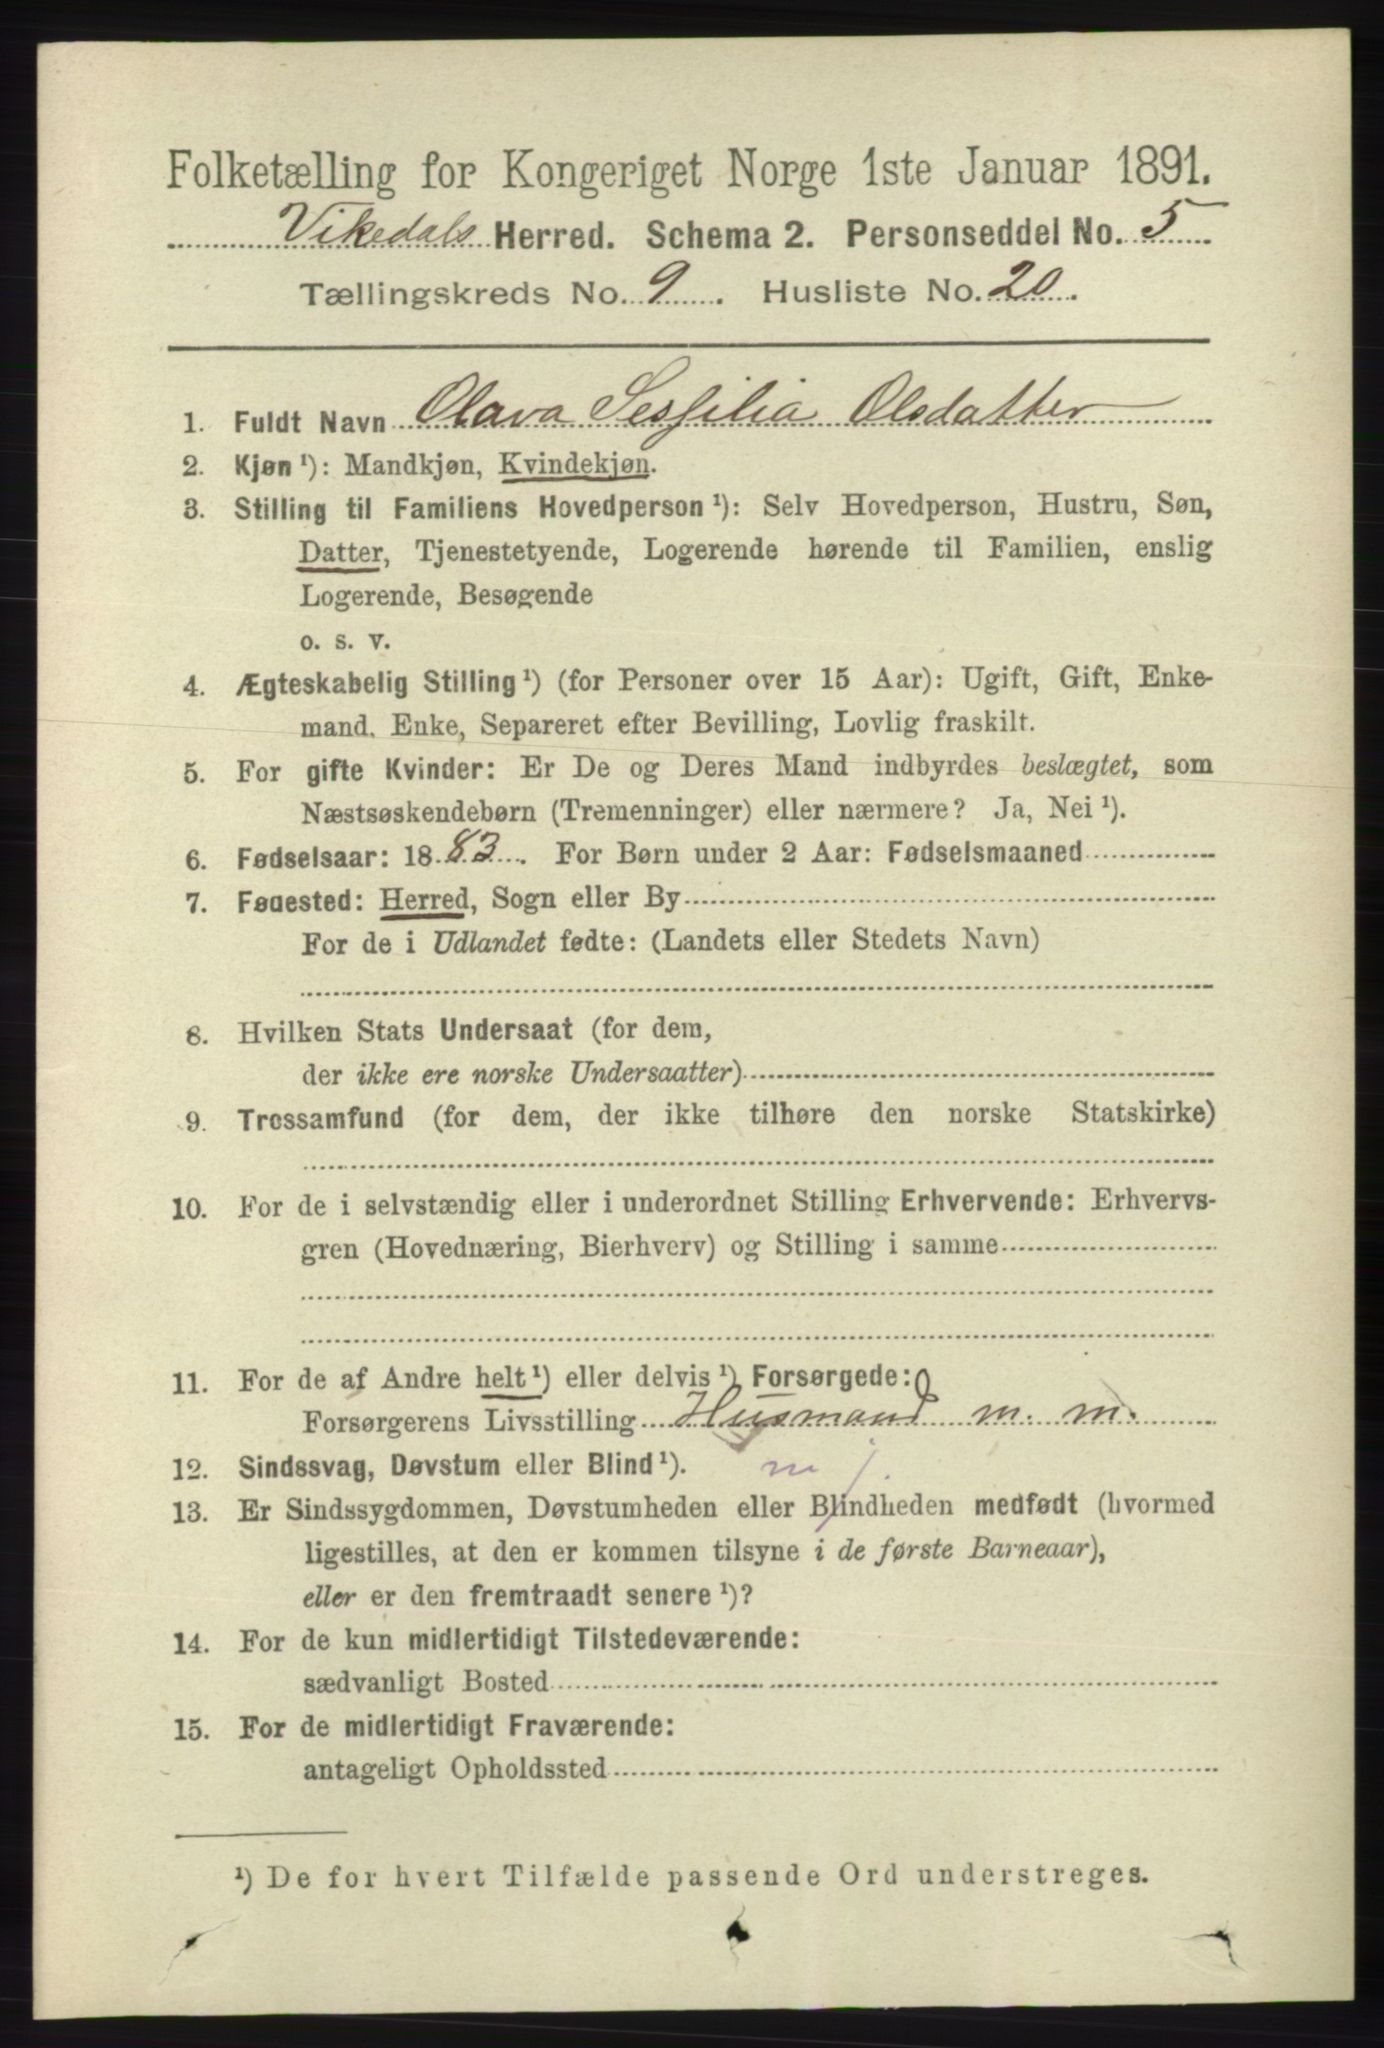 Folketælling for Kongeriget Norge 1ste Januar 1891.
Vikedals Herred. Schema 2. Personseddel No. 5
Tællingskreds No. 9. Husliste No. 20.
1. Fuldt Navn Olava Sesfilia Olsdatter
2. Kjøn ¹): Mandkjøn, Kvindekjøn.
3. Stilling til Familiens Hovedperson ¹): Selv Hovedperson, Hustru, Søn,
Datter, Tjenestetyende, Logerende hørende til Familien, enslig
Logerende, Besøgende
o. s. v.
4. Ægteskabelig Stilling ¹) (for Personer over 15 Aar): Ugift, Gift, Enke-
mand, Enke, Separeret efter Bevilling, Lovlig fraskilt.
5. For gifte Kvinder: Er De og Deres Mand indbyrdes beslægtet, som
Næstsøskendebørn (Tremenninger) eller nærmere? Ja, Nei ¹).
6. Fødselsaar: 1883. For Børn under 2 Aar: Fødselsmaaned
7. Fødested: Herred, Sogn eller By
For de i Udlandet fødte: (Landets eller Stedets Navn)
8. Hvilken Stats Undersaat (for dem,
der ikke ere norske Undersaatter)
9. Trossamfund (for dem, der ikke tilhøre den norske Statskirke)
10. For de i selvstændig eller i underordnet Stilling Erhvervende: Erhvervs-
gren (Hovednæring, Bierhverv) og Stilling i samme
11. For de af Andre helt ¹) eller delvis ¹) Forsørgede:
Forsørgerens Livsstilling Husmand m. m.
12. Sindssvag, Døvstum eller Blind ¹).
13. Er Sindssygdommen, Døvstumheden eller Blindheden medfødt (hvormed
ligestilles, at den er kommen tilsyne i de første Barneaar),
eller er den fremtraadt senere ¹)?
14. For de kun midlertidigt Tilstedeværende:
sædvanligt Bosted
15. For de midlertidigt Fraværende:
antageligt Opholdssted
¹) De for hvert Tilfælde passende Ord understreges.